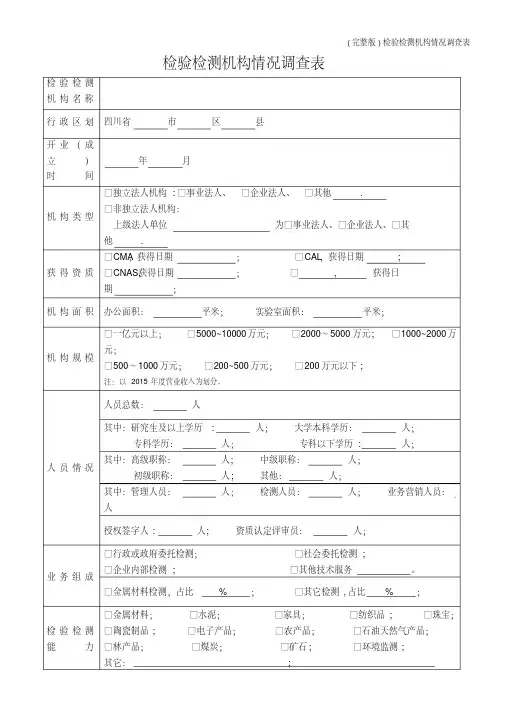 (完整版)检验检测机构情况调查表
检验检测机构情况调查表
检验检测
机构名称
行政区划 四川省______市______区______县
开业(成
立)
时间 ______年______月
机构类型 □独立法人机构:□事业法人、 □企业法人、 □其他______.
□非独立法人机构:
上级法人单位______为□事业法人、□企业法人、□其
他______.
获得资质 □CMA,获得日期______; □CAL,获得日期______;
□CNAS,获得日期______; □______,获得日
期______;
机构面积 办公面积:______平米; 实验室面积:______平米;
机构规模 □一亿元以上; □5000~10000万元; □2000~5000万元; □1000~2000万
元;
□500~1000万元; □200~500万元; □200万元以下;
注:以2015年度营业收入为划分。
人员情况 人员总数:______人
其中:研究生及以上学历:______人; 大学本科学历:______人;
专科学历:______人; 专科以下学历:______人;
其中:高级职称:______人; 中级职称:______人;
初级职称:______人; 其他:______人;
其中:管理人员:______人; 检测人员:______人; 业务营销人员:
人
授权签字人:______人; 资质认定评审员:______人;
业务组成 □行政或政府委托检测; □社会委托检测;
□企业内部检测; □其他技术服务______。
□金属材料检测,占比______%; □其它检测,占比______%;
检验检测
能力 □金属材料; □水泥; □家具; □纺织品; □珠宝;
□陶瓷制品; □电子产品; □农产品; □石油天然气产品;
□林产品; □煤炭; □矿石; □环境监测;
其它:______;______